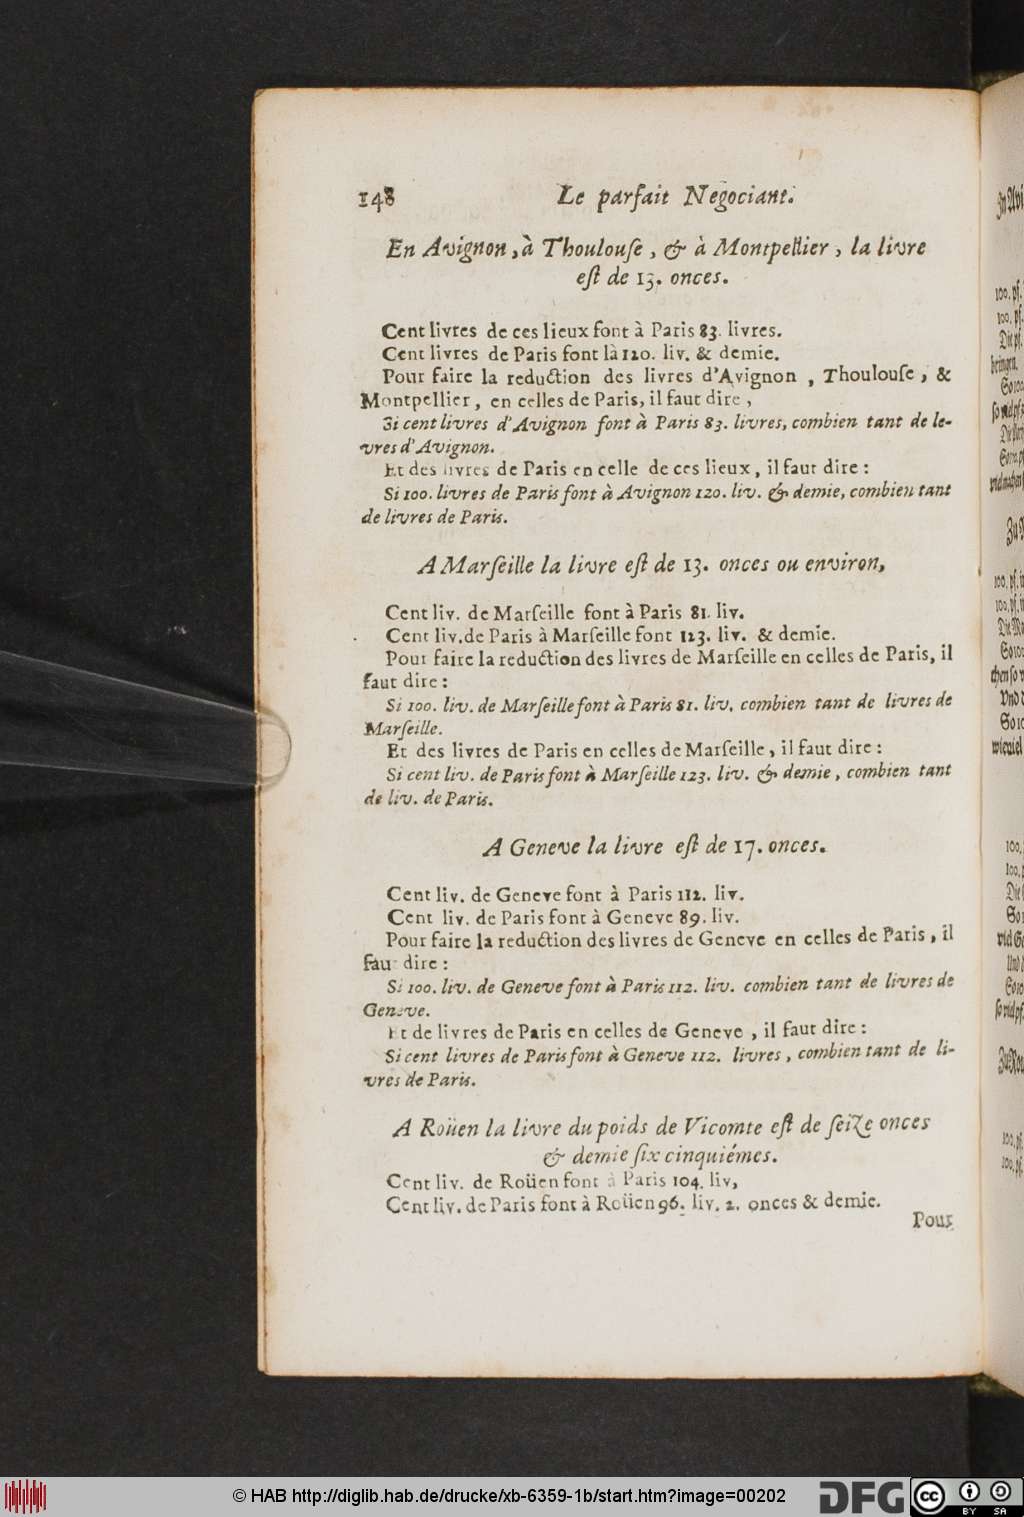 148 Le parfait Negociant.
En Avignon, à Thoulouſe, & à Montpellier, la livre
eſt de 13. onces.
Cent livres de ces lieux font à Paris 83. livres.
Cent livres de Paris font là 120. liv. & demie.
Pour faire la reduction des livres d'Avignon, Thoulouſe, &
Montpellier, en celles de Paris, il faut dire,
Si cent livres d'Avignon font à Paris 83. livres, combien tant de le-
vres d'Avignon.
Et des livres de Paris en celle de ces lieux, il faut dire:
Si 100. livres de Paris font à Avignon 120. liv. & demie, combien tant
de livres de Paris.
A Marſeille la livre eſt de 13. onces ou environ,
Cent liv. de Marſeille font à Paris 81. liv.
Cent liv. de Paris à Marſeille font 123. liv. & demie.
Pour faire la reduction des livres de Marſeille en celles de Paris, il
faut dire:
Si 100. liv. de Marſeille font à Paris 81. liv. combien tant de livres de
Marſeille.
Et des livres de Paris en celles de Marſeille, il faut dire:
Si cent liv. de Paris font à Marſeille 123. liv. & demie, combien tant
de liv. de Paris.
A Geneve la livre eſt de 17. onces.
Cent liv. de Geneve font à Paris 112. liv.
Cent liv. de Paris font à Geneve 89. liv.
Pour faire la reduction des livres de Geneve en celles de Paris, il
faut dire:
Si 100. liv. de Geneve font à Paris 112. liv. combien tant de livres de
Geneve.
Et de livres de Paris en celles de Geneve, il faut dire:
Si cent livres de Paris font à Geneve 112. livres, combien tant de li-
vres de Paris.
A Roüen la livre du poids de Vicomte eſt de ſeize onces
& demie ſix cinquiémes.
Cent liv. de Roüen font à Paris 104. liv,
Cent liv. de Paris font à Roüen 96. liv. 2. onces & demie.
Pour
© HAB http://diglib.hab.de/drucke/xb-6359-1b/start.htm?image=00202
DFG
cc BY SA